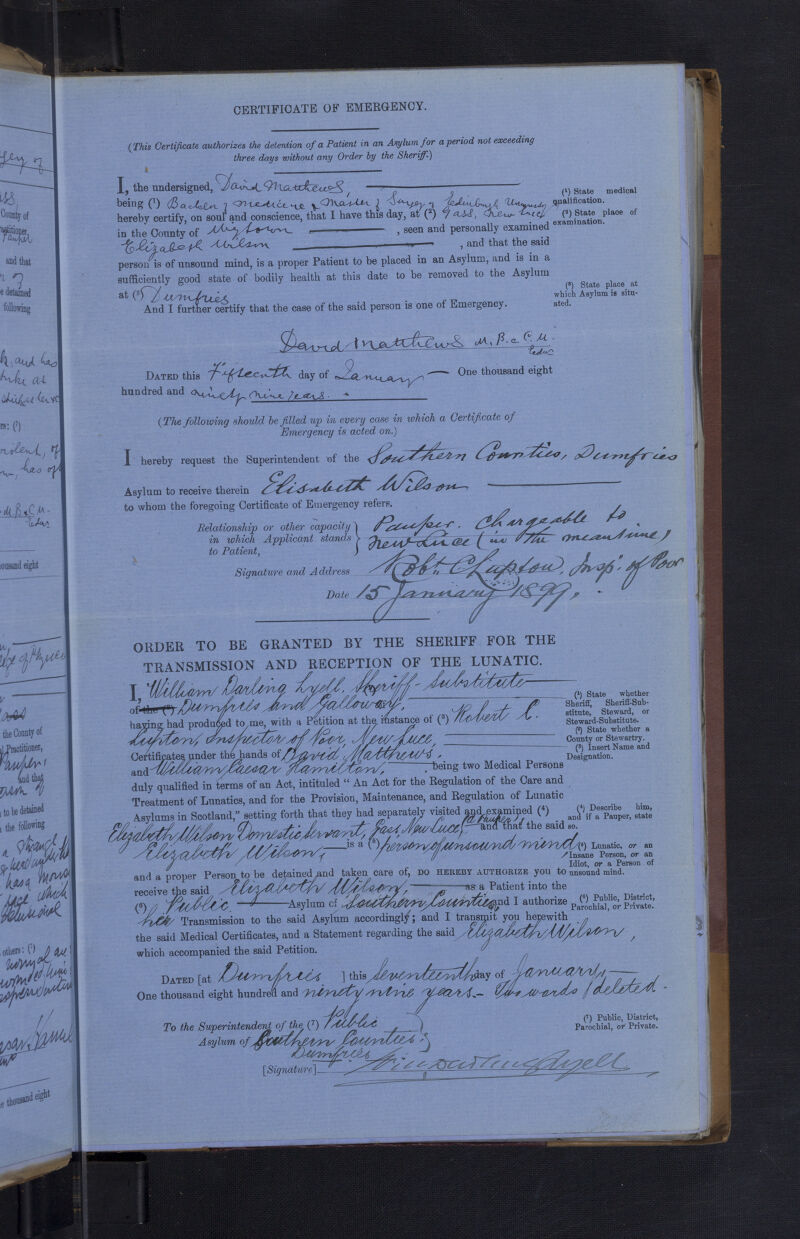 CERTIFICATE OF EMERGENCY.
(This Certificate authorizes the detention of a Patient in an Asylum for a period not exceeding
three days without any Order by the Sheriff.)
I, the undersigned, David Matthews,
being (¹) Bachelor of medicine & Master of Surgery Edinburgh University
hereby certify, on soul and conscience, that I have this day, at (²) Gass, New Luce
in the County of Wigtown, seen and personally examined
Elizabeth Wilson, and that the said
person is of unsound mind, is a proper Patient to be placed in an Asylum, and is in a
sufficiently good state of bodily health at this date to be removed to the Asylum
at (³) Dumfries
And I further certify that the case of the said person is one of Emergency.
(¹) State medical
qualification.
(²) State place of
examination.
(³) State place at
which Asylum is situ-
ated.
David Matthews M.B. & C.M.
Edin
DATED this Fifteenth day of January — One thousand eight
hundred and ninety nine years.
(The following should be filled up in every case in which a Certificate of
Emergency is acted on.)
I hereby request the Superintendent of the Southern Counties, Dumfries
Asylum to receive therein Elisabeth Wilson
to whom the foregoing Certificate of Emergency refers.
Relationship or other capacity
in which Applicant stands
to Patient,
Pauper. Chargeable to
New Luce (in the meantime)
Signature and Address Robt. C Lupton, Insp. of Poor
Date 15 January 1899.
ORDER TO BE GRANTED BY THE SHERIFF FOR THE
TRANSMISSION AND RECEPTION OF THE LUNATIC.
I, William Darling Lyell, Sheriff-Substitute
of the (²) Dumfries and Galloway,
having had produced to me, with a Petition at the instance of (³) Robert C.
Lupton, Inspector of Poor, New Luce,
Certificates under the hands of David Matthews,
and William Caesar Hamilton, being two Medical Persons
duly qualified in terms of an Act, intituled "An Act for the Regulation of the Care and
Treatment of Lunatics, and for the Provision, Maintenance, and Regulation of Lunatic
Asylums in Scotland," setting forth that they had separately visited and examined (⁴)
Elizabeth Wilson Domestic Servant, Gass, New Luce, (a Pauper) and that the said
Elizabeth Wilson, is a (⁵) person of unsound mind
and a proper Person to be detained and taken care of, DO HEREBY AUTHORIZE you to
receive the said Elizabeth Wilson, as a Patient into the
(⁶) Public Asylum of Southern Counties, and I authorize
her Transmission to the said Asylum accordingly; and I transmit you herewith
the said Medical Certificates, and a Statement regarding the said Elizabeth Wilson,
which accompanied the said Petition.
(¹) State whether
Sheriff, Sheriff-Sub-
stitute, Steward, or
Steward-Substitute.
(²) State whether a
County or Stewartry.
(³) Insert Name and
Designation.
(⁴) Describe him,
and if a Pauper, state
so.
(⁵) Lunatic, or an
Insane Person, or an
Idiot, or a Person of
unsound mind.
(⁶) Public, District,
Parochial, or Private.
DATED [at Dumfries ] this seventeenth day of January,
One thousand eight hundred and ninety nine years — Two words deleted.
To the Superintendent of the (⁷) Public
Asylum of Southern Counties
Dumfries
(⁷) Public, District,
Parochial, or Private.
[Signature] Wm Darling Lyell